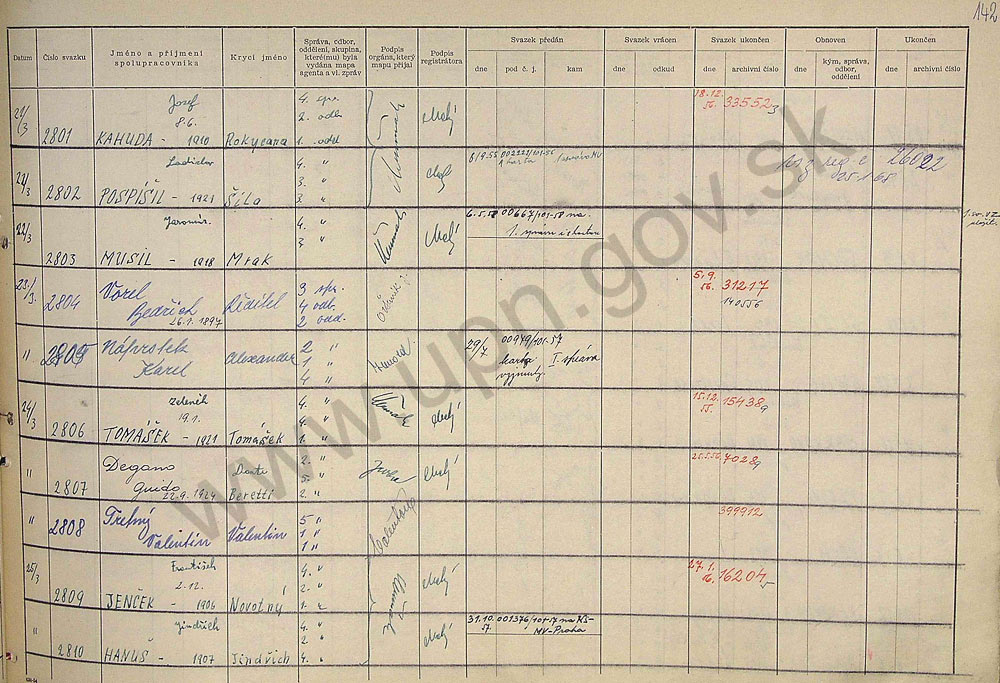 142
Datum
Číslo svazku
Jméno a příjmení
spolupracovníka
Krycí jméno
Správa, odbor,
oddělení, skupina,
které(mu) byla
vydána mapa
agenta a vl. zpráv
Podpis
orgánu, který
mapu přijal
Podpis
registrátora
Svazek předán
dne
pod č. j.
kam
Svazek vrácen
dne
odkud
Svazek ukončen
dne
archivní číslo
Obnoven
dne
kým, správa,
odbor,
oddělení
Ukončen
dne
archivní číslo
21/3 2801 Josef 8.6. KAHUDA - 1910 Rokycana
4. spr.
2. odb.
1. odd.
Malý
18.12.
56. 33552
21/3 2802 Ladislav POSPÍŠIL - 1921 Šíla
4. "
3. "
3. "
Malý
6/9.55 002221/101-56
1 správa MV
nsz reg-c 26022
25.1.65
22/3 2803 Jaromír. MUSIL - 1918 Mrak
4. "
3 "
Malý
6.5.58 00667/101-58 na
1. správu
23./3. 2804 Vorel
Bedřich
26.1.1897
Ředitel
3 spr.
4 odb.
2 odd.
5.9.
56. 31217
140556
" 2805 Náprstek
Karel
Alexander
2 "
1 "
4 "
29/7 00949/101-57
karta I. správa
vyjmuty
24/3 2806 Zdeněk 19.1. TOMÁŠEK - 1921 Tomášek
4. "
4. "
1. "
Malý
15.12.
55. 15438
" 2807 Degano
Guido
22.9.1924
Dante
Beretti
2. "
5. "
2. "
Malý
25.5.56 7028
" 2808 Třetný
Valentin
Valentin
5 "
1 "
1 "
399912
25/3 2809 František 2.12. JENČEK - 1906 Novotný
4. "
2. "
1. "
Malý
27.1.
56. 16204
" 2810 Jindřich HANUŠ - 1907 Jindřich
4. "
2 "
4. "
Malý
31.10.
57. 001376/101-57 na KS-
MV-Praha
www.upn.gov.sk